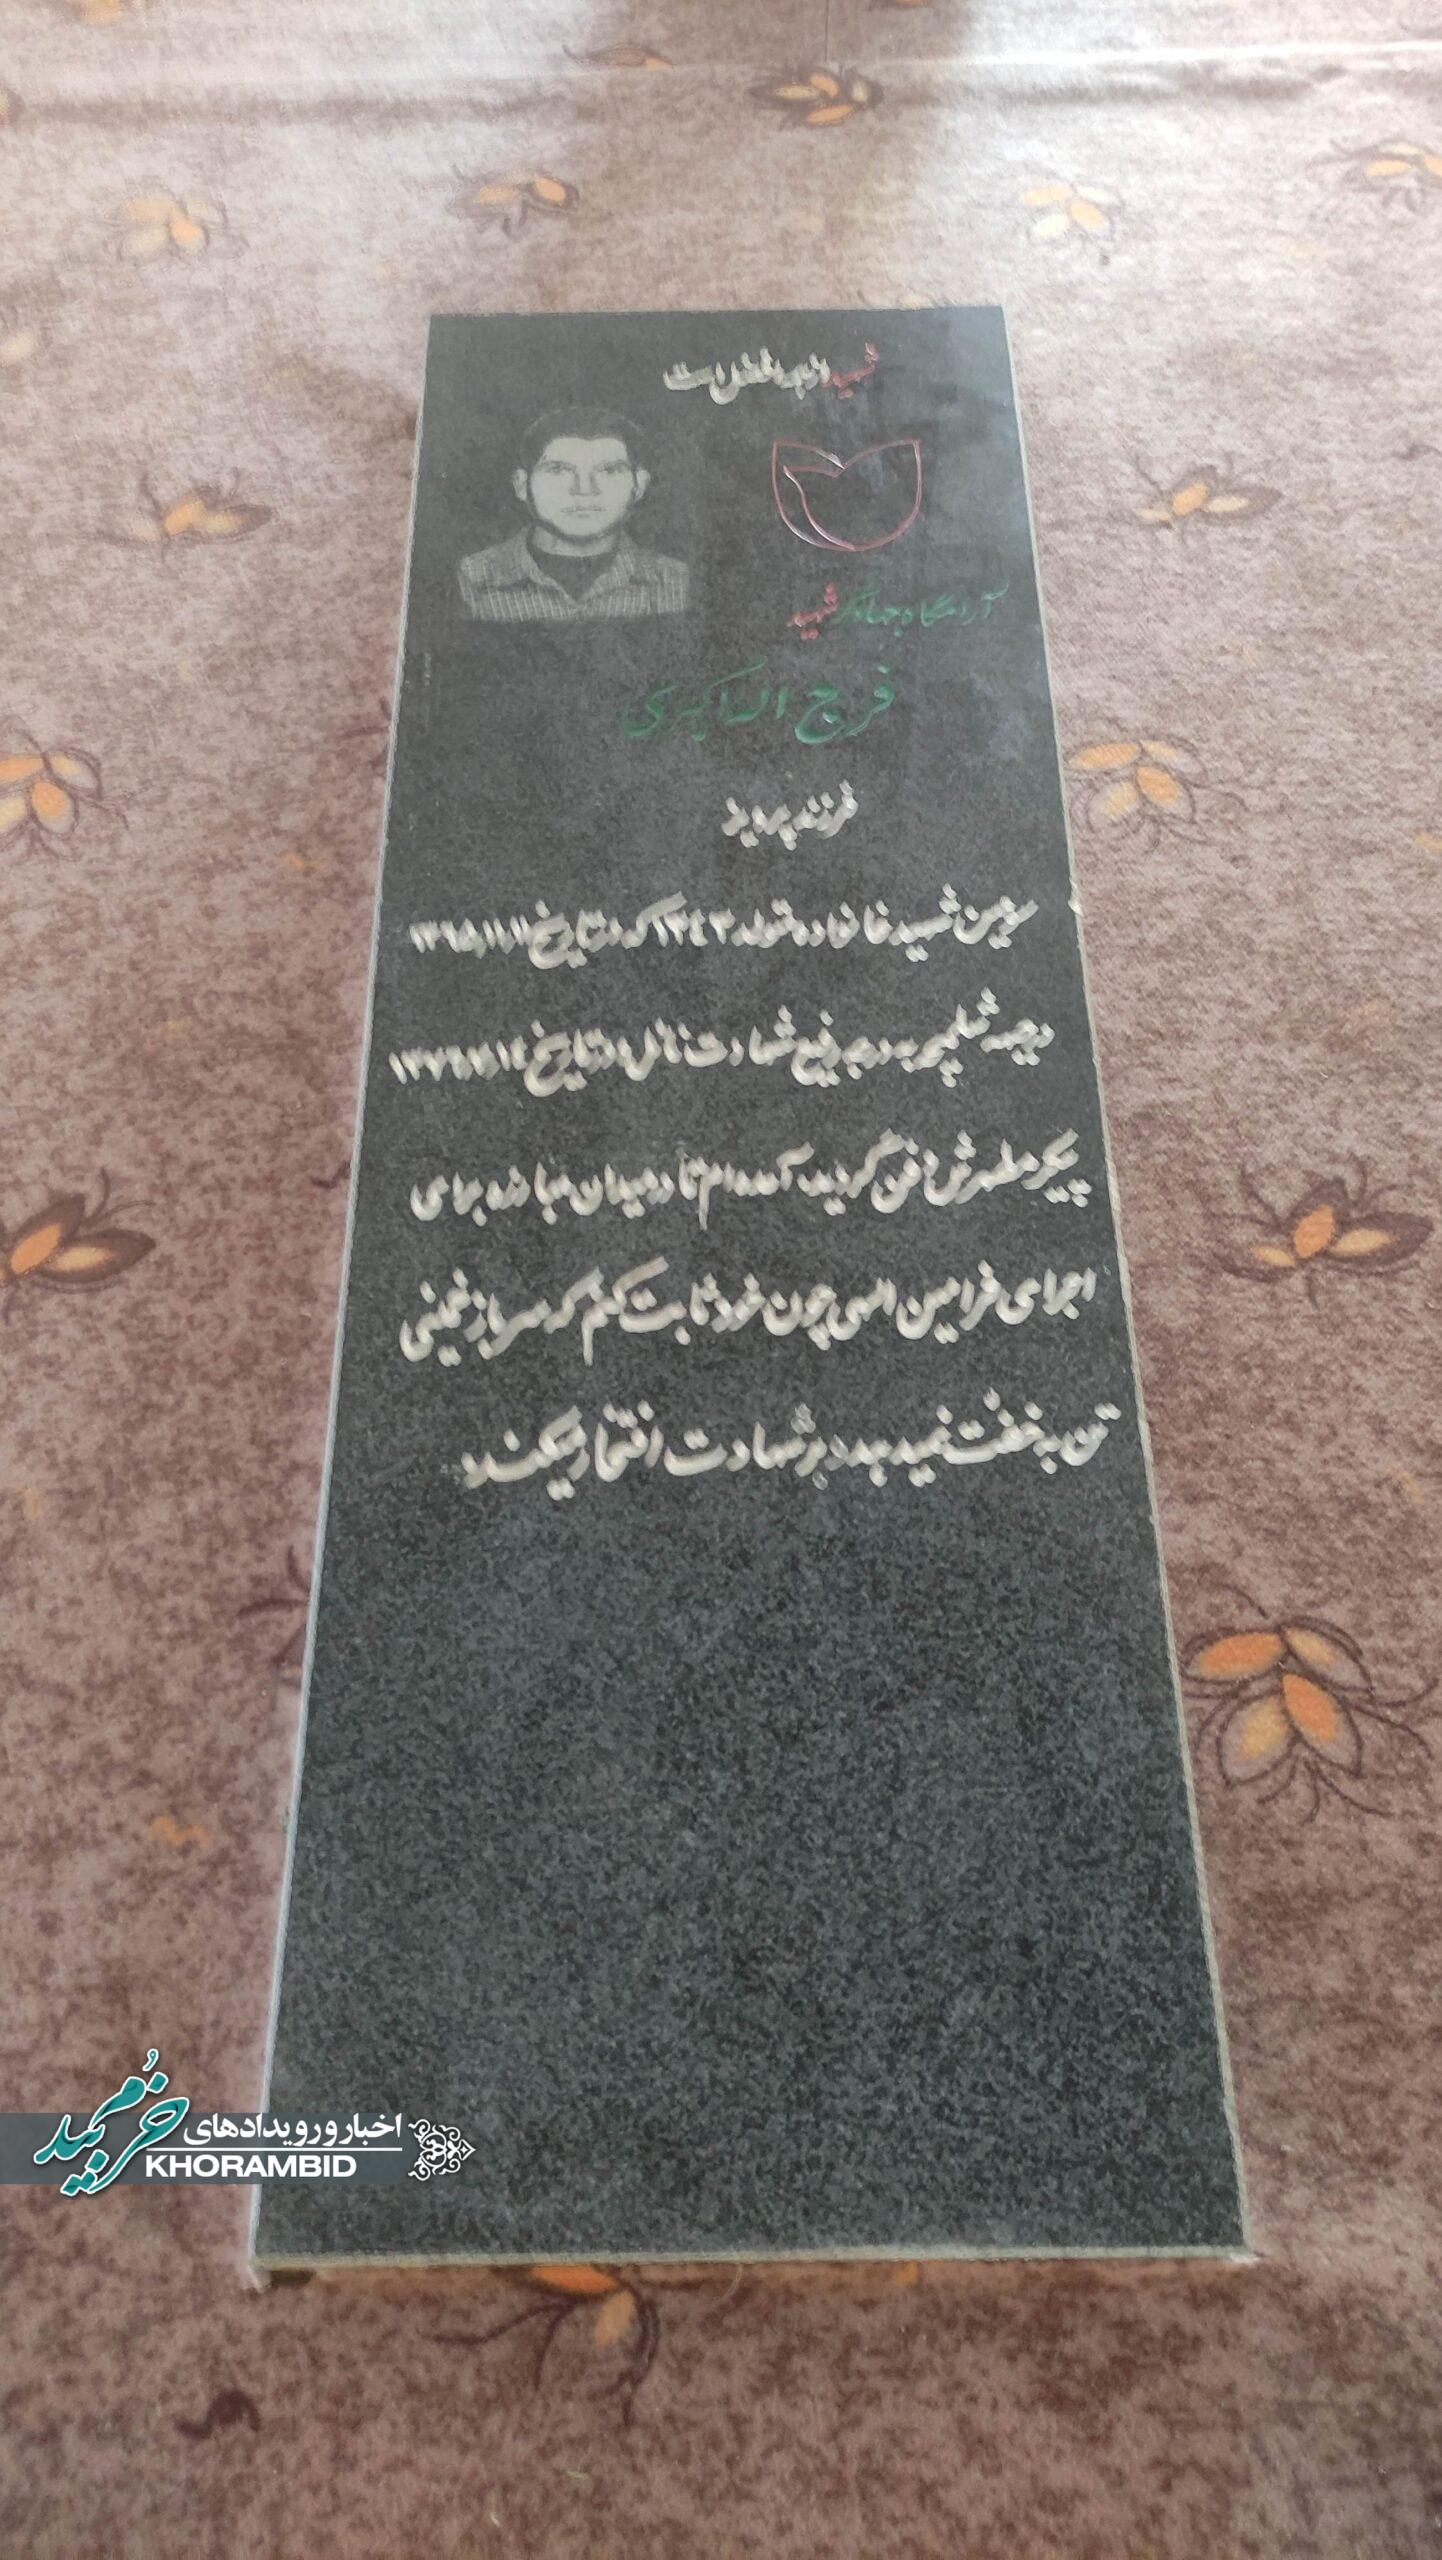 شهید از همه افضل است
آرامگاه جهادگر شهید
فرج اله اکبری
فرزند پرویز
سومین شهید خانواده تولد ۱۳۴۳ که در تاریخ ۱۳۶۵/۱۱/۱۱
در جبهه شلمچه به درجه رفیع شهادت نائل و در تاریخ
پیکر مطهرش دفن گردید. آمده ام تا در میدان مبارزه برای
اجرای فرامین الهی چون خود ثابت کنم که سرباز خمینی
تن به خفت نمیدهد و بر شهادت افتخار میکند
اخبار و رویدادهای
خرمبید
KHORAMBID